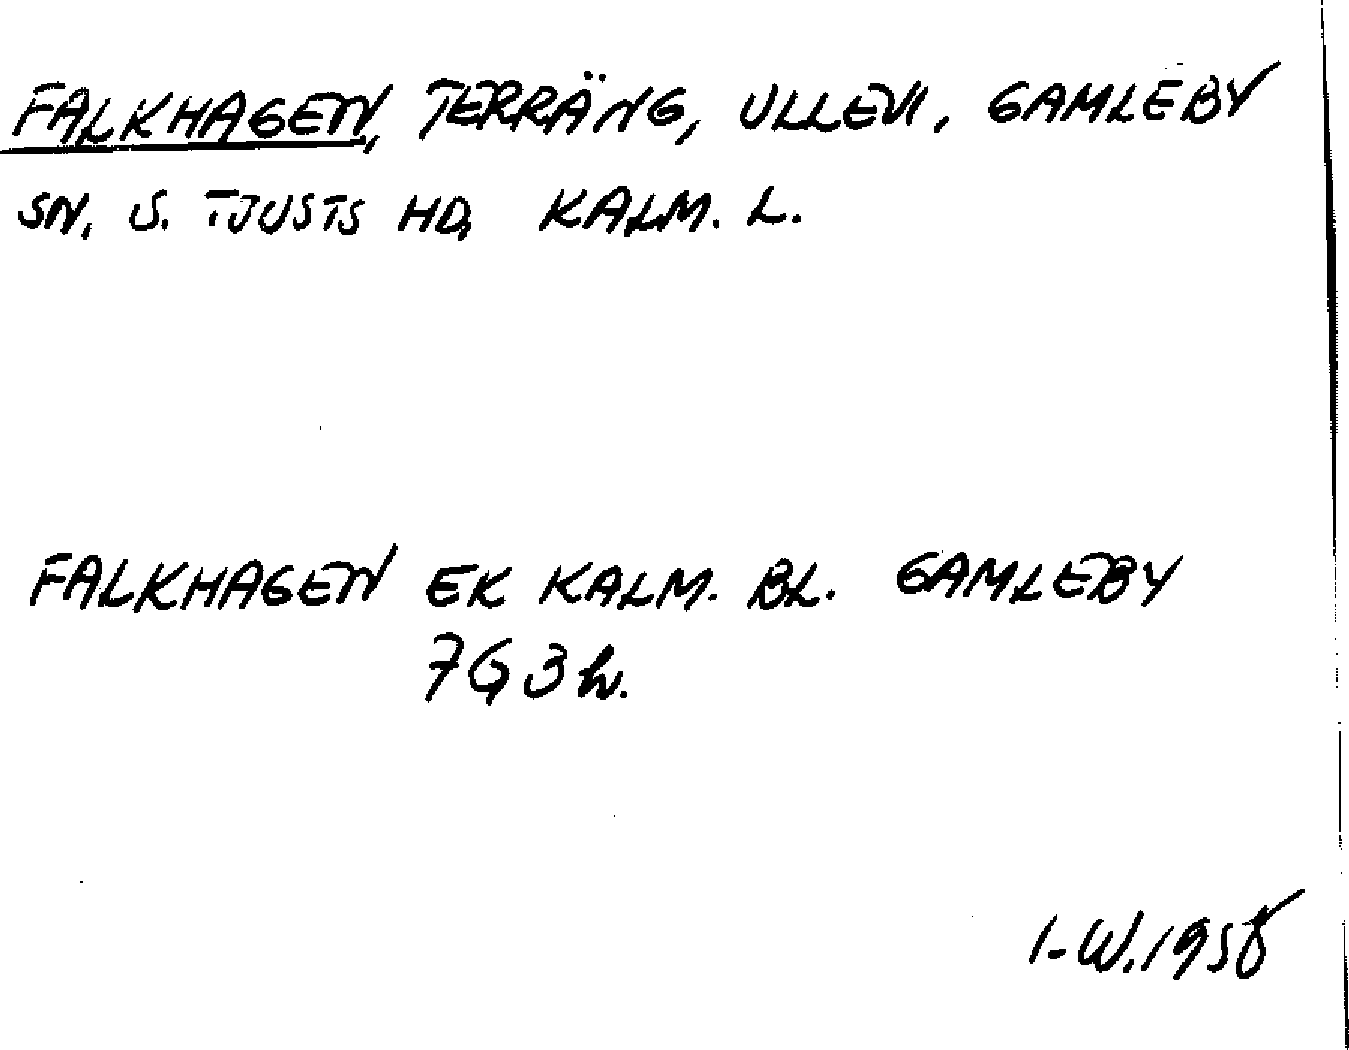 FALKHAGEN, TERRÄNG, ULLEVI, GAMLEBY
SN, S. TJUSTS HD, KALM. L.
FALKHAGEN EK KALM. BL. GAMLEBY
7G3h.
I-W.1958